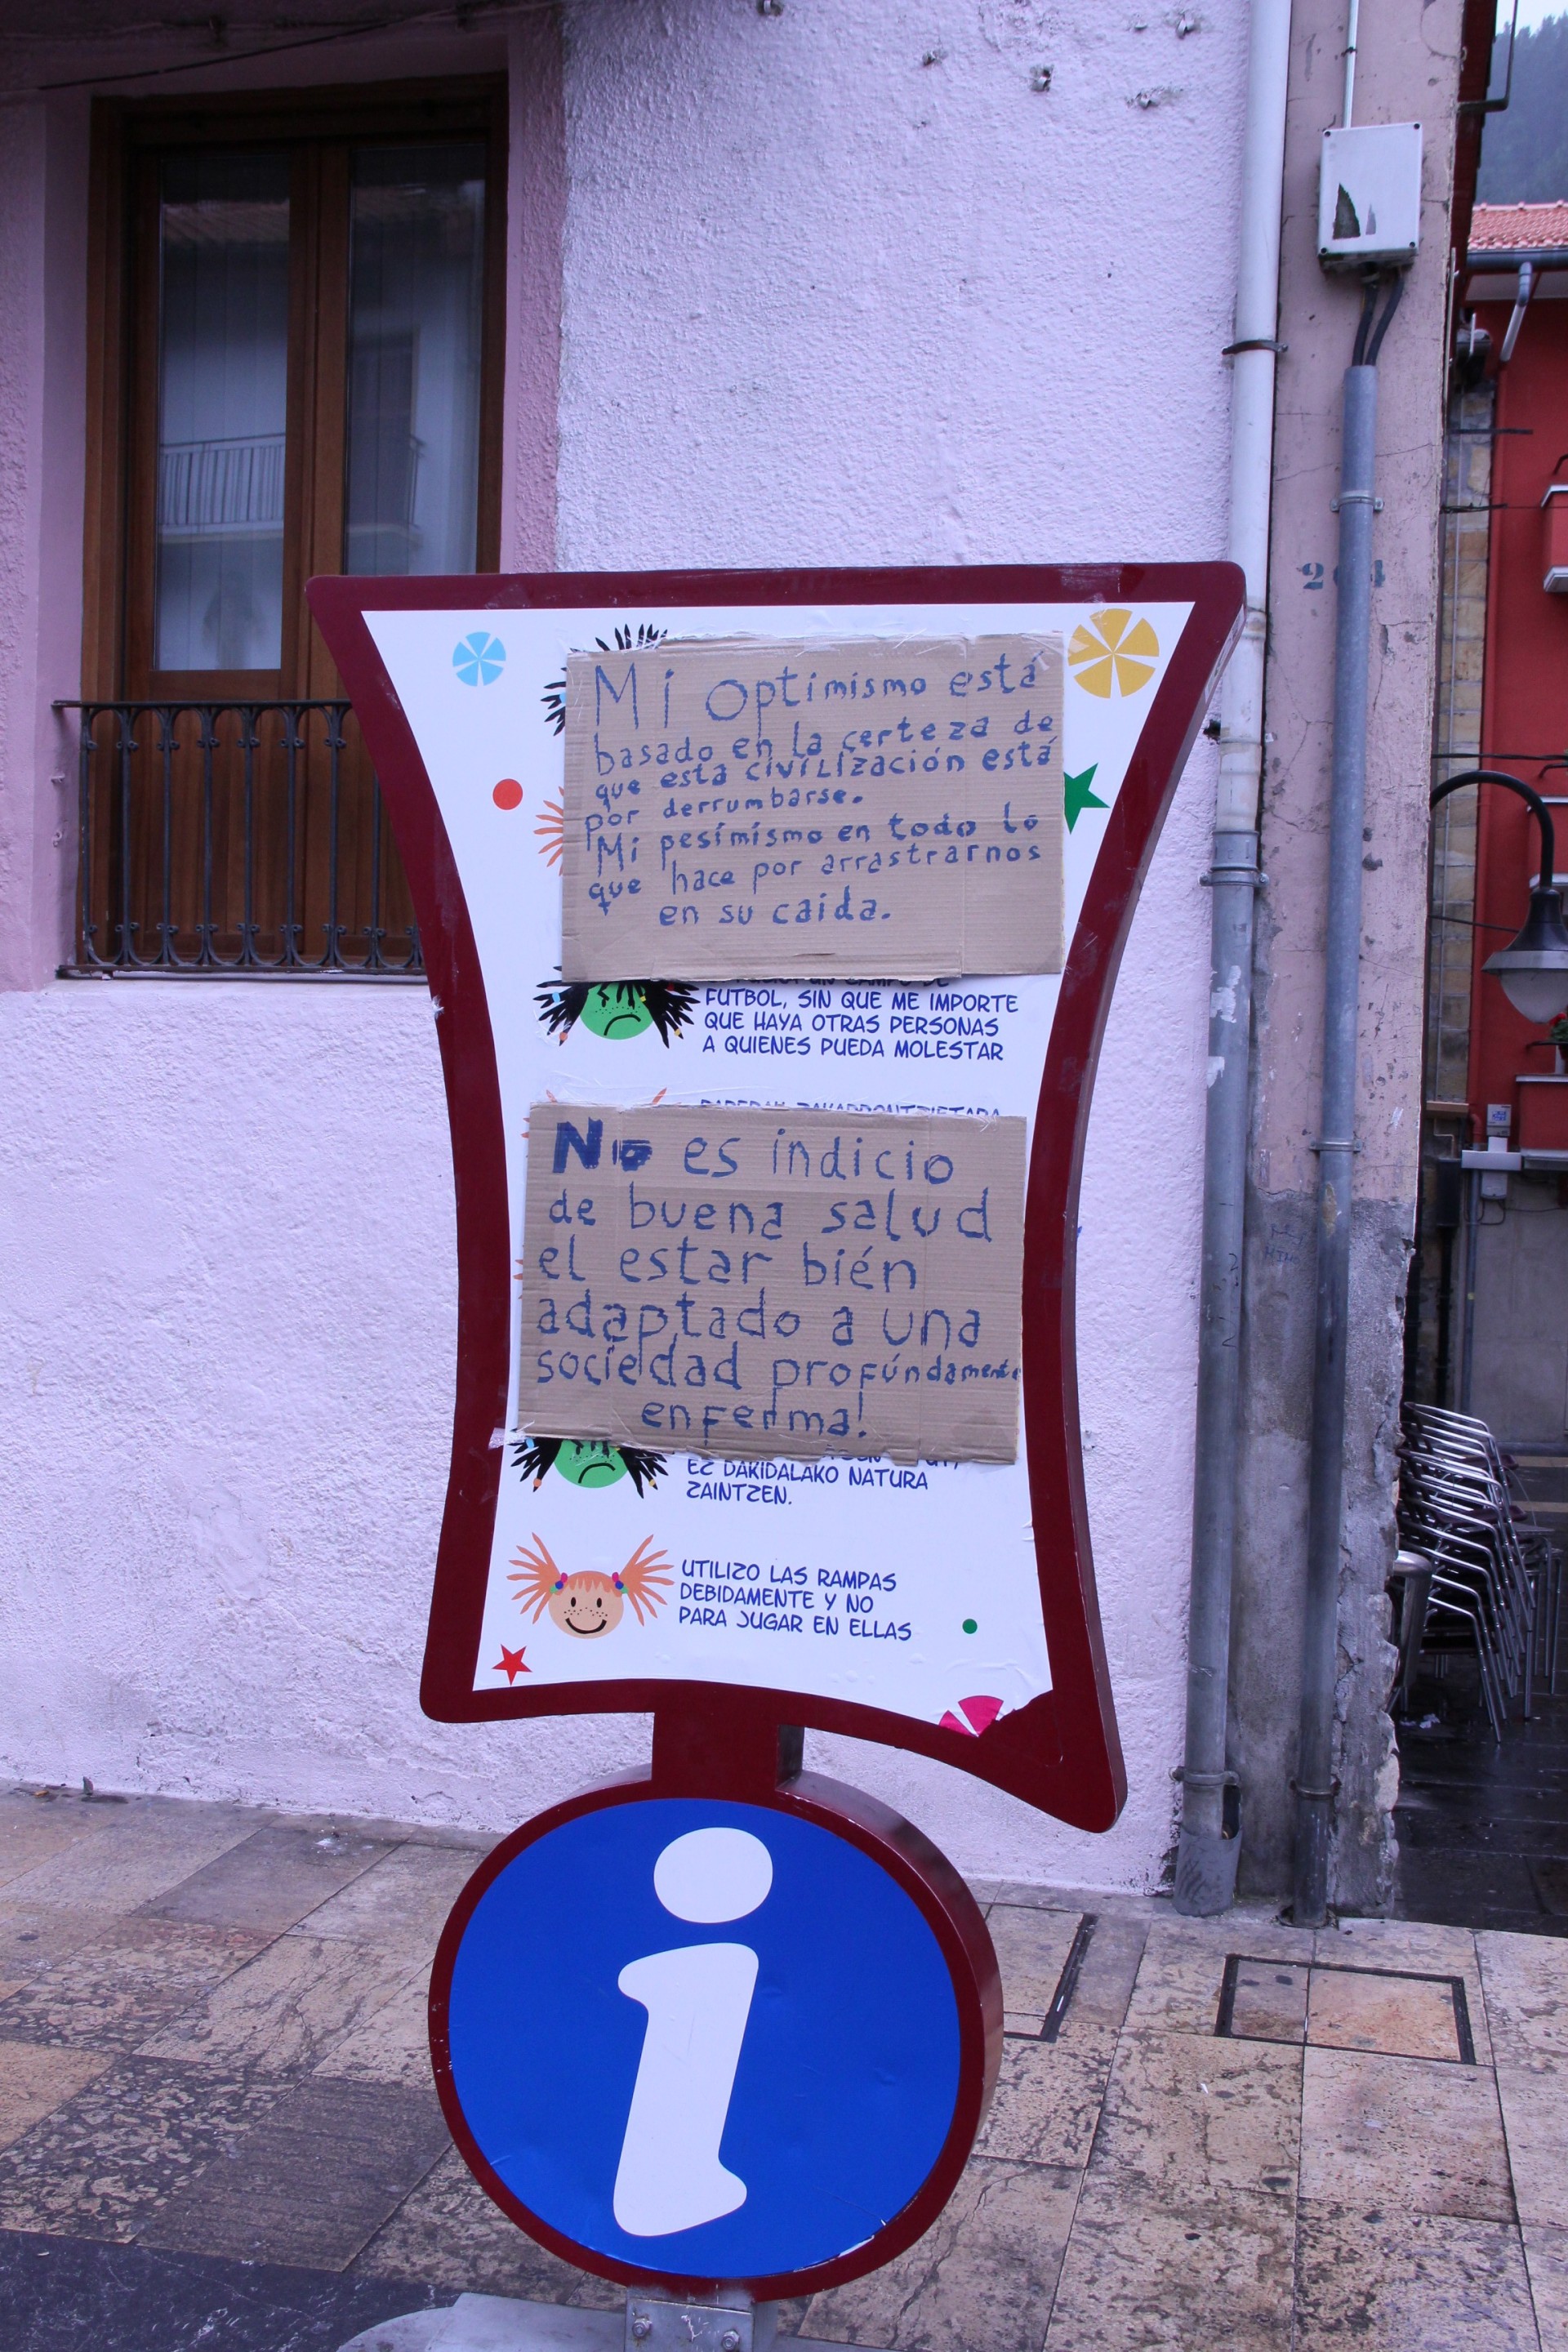 Mi optimismo está
basado en la certeza de
que esta civilización está
por derrumbarse.
Mi pesímismo en todo lo
que hace por arrastrarnos
en su caida.
FUTBOL, SIN QUE ME IMPORTE
QUE HAYA OTRAS PERSONAS
A QUIENES PUEDA MOLESTAR
No es indicio
de buena salud
el estar bién
adaptado a una
sociedad profúndamente
enferma!
EZ DAKIDALAKO NATURA
ZAINTZEN.
UTILIZO LAS RAMPAS
DEBIDAMENTE Y NO
PARA JUGAR EN ELLAS
i